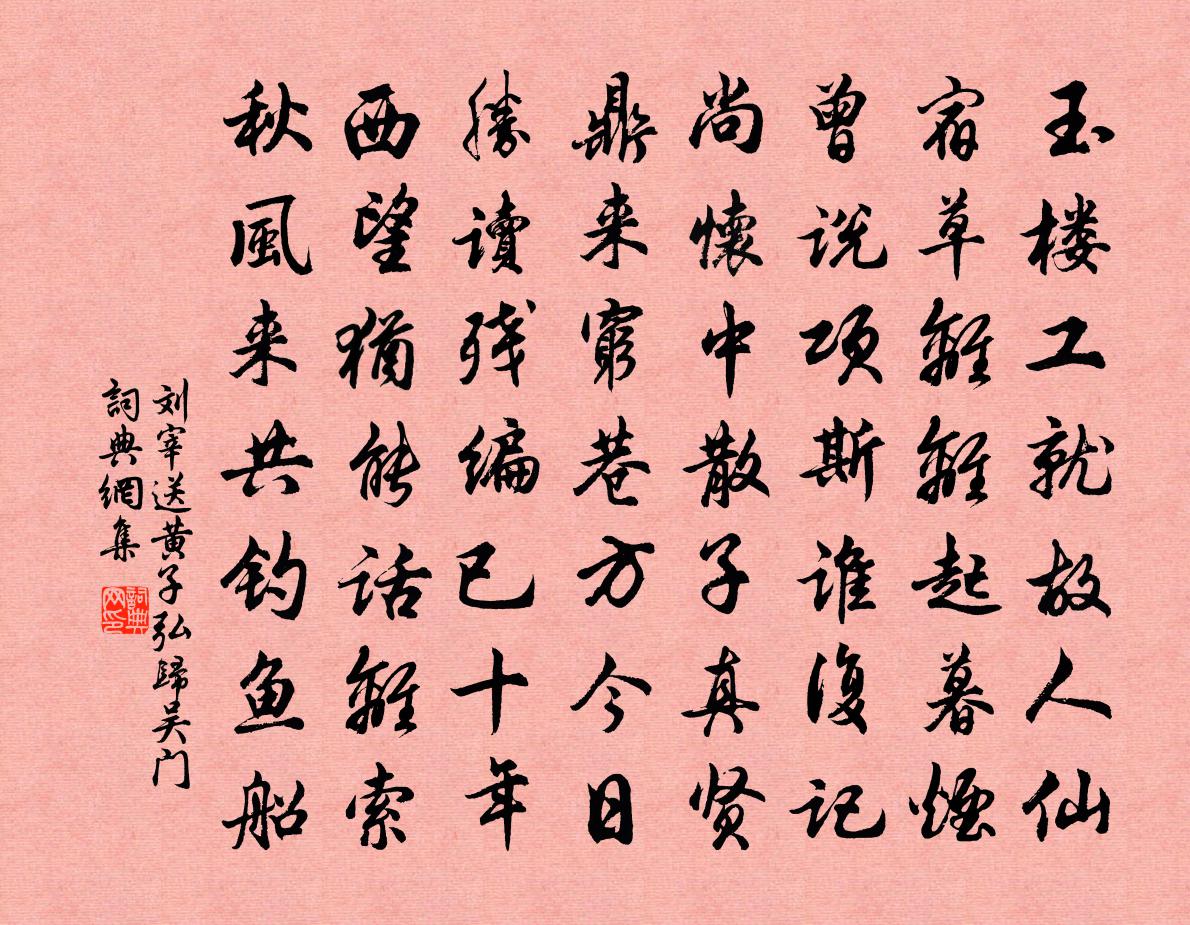 玉楼工就故人仙
宿草離離起暮煙
曾说项斯谁復记
尚懷中散子真贤
鼎来窮巷方今日
勝讀残编已十年
西望猶能话離索
秋風来共钓鱼船
刘宰送黄子弘歸吴门
詞典網集
詞典网印